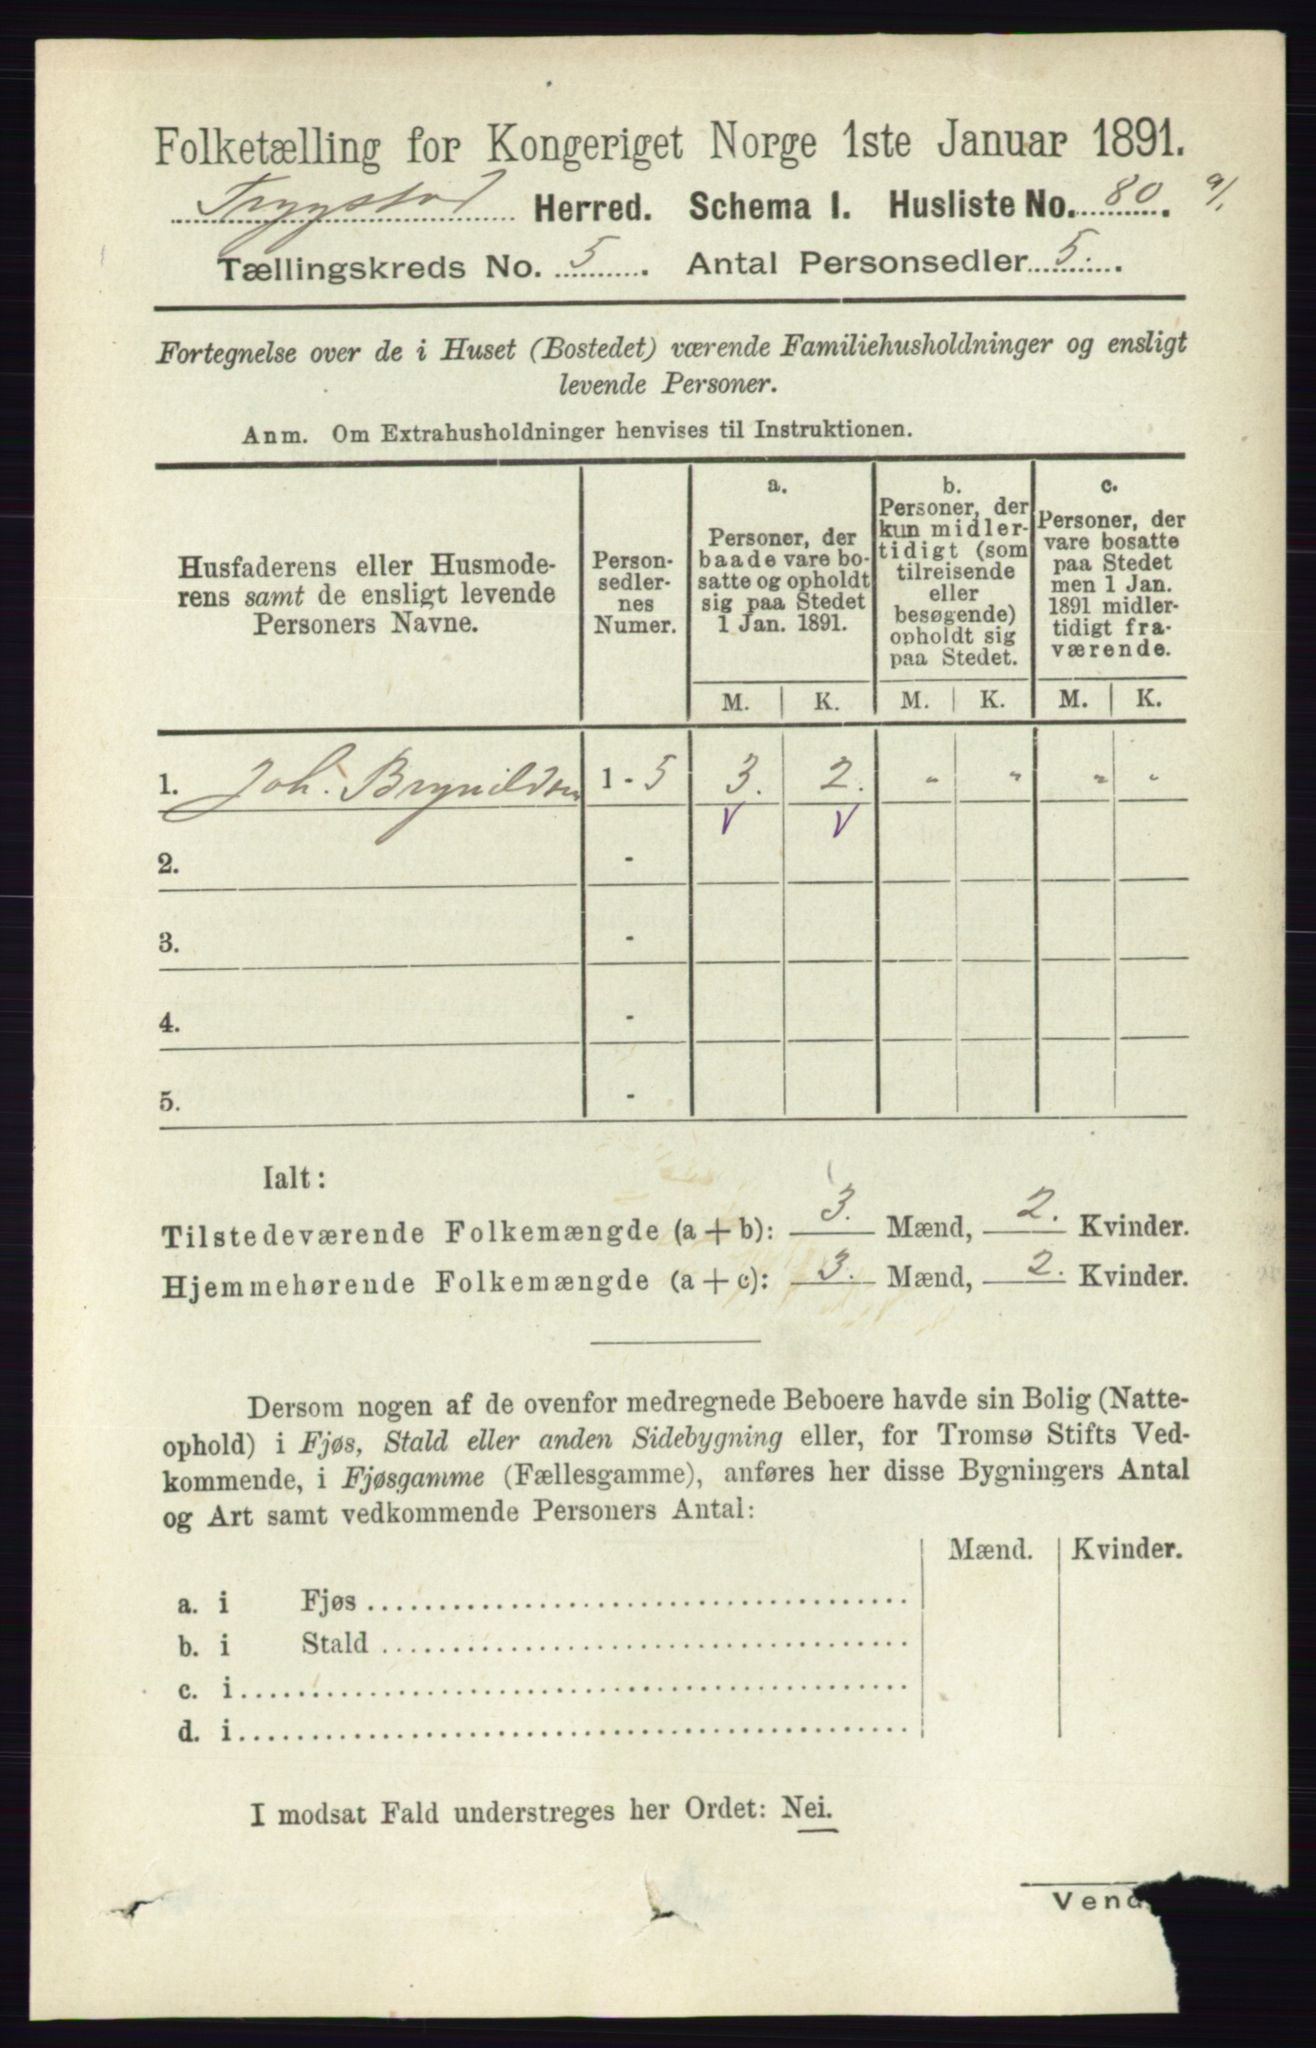 Folketælling for Kongeriget Norge 1ste Januar 1891.
Trygstad Herred. Schema I. Husliste No. 80.
Tællingskreds No. 5. Antal Personsedler 5.
Fortegnelse over de i Huset (Bostedet) værende Familiehusholdninger og ensligt
levende Personer.
Anm. Om Extrahusholdninger henvises til Instruktionen.
Husfaderens eller Husmode-
rens samt de ensligt levende
Personers Navne.
Person-
sedler-
nes
Numer.
a.
Personer, der
baade vare bo-
satte og opholdt
sig paa Stedet
1 Jan. 1891.
b.
Personer, der
kun midler-
tidigt (som
tilreisende
eller
besøgende)
opholdt sig
paa Stedet.
c.
Personer, der
vare bosatte
paa Stedet
men 1 Jan.
1891 midler-
tidigt fra-
værende.
M. K. M. K. M. K.
1. Joh. Brynildsen 1 - 5 3. 2. " " " "
V V
2. -
3. -
4. -
5. -
Ialt:
Tilstedeværende Folkemængde (a + b): 3. Mænd, 2. Kvinder.
Hjemmehørende Folkemængde (a + c): 3. Mænd, 2. Kvinder.
Dersom nogen af de ovenfor medregnede Beboere havde sin Bolig (Natte-
ophold) i Fjøs, Stald eller anden Sidebygning eller, for Tromsø Stifts Ved-
kommende, i Fjøsgamme (Fællesgamme), anføres her disse Bygningers Antal
og Art samt vedkommende Personers Antal:
Mænd. Kvinder.
a. i Fjøs
b. i Stald
c. i
d. i
I modsat Fald understreges her Ordet: Nei.
Vend